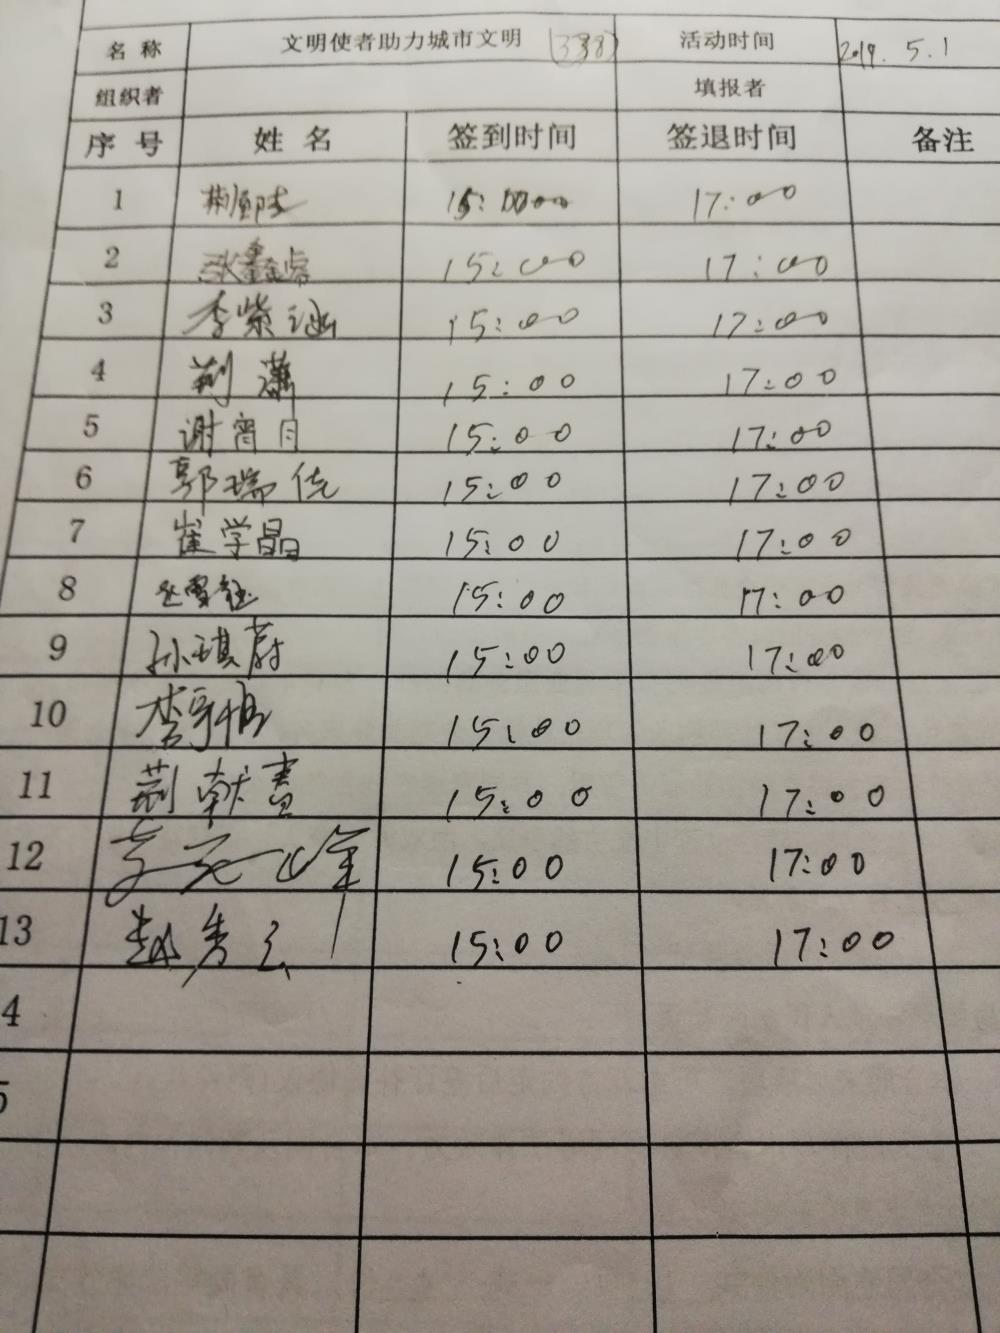 名称 文明使者助力城市文明 (338) 活动时间 2019.5.1
组织者 填报者
序号 姓名 签到时间 签退时间 备注
1 15:00 17:00
2 张鑫睿 15:00 17:00
3 李紫涵 15:00 17:00
4 荆潇 15:00 17:00
5 谢宵月 15:00 17:00
6 郭瑞佳 15:00 17:00
7 崔学晶 15:00 17:00
8 15:00 17:00
9 孙琪蔚 15:00 17:00
10 15:00 17:00
11 荆献书 15:00 17:00
12 15:00 17:00
13 赵秀云 15:00 17:00
4
5